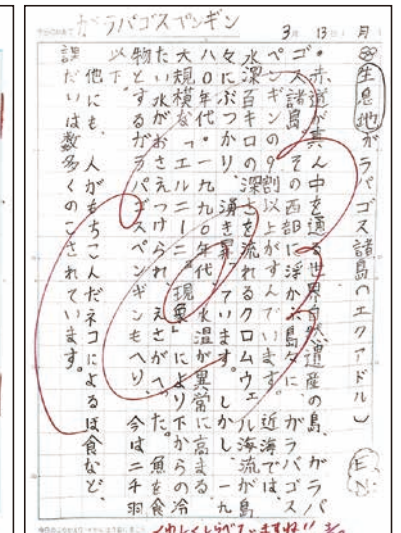 ガラパゴスペンギン
3月 13日( )月
生息地 ガラパゴス諸島(エクアドル) EN
・赤道が真ん中を通る世界自然遺産の島、ガラパ
ゴス諸島。その西部に浮かぶ島々に、ガラパゴス
ペンギンの9割以上がすんでいます。近海では、
水深百キロの深さを流れるクロムウェル海流が島
々にぶつかり、湧き昇っています。しかし、一九
八〇年代・一九九〇年代、水温が異常に高まる
大規模な「エルニーニョ現象」により下からの冷
たい水がおさえつけられ、えさがへった。魚を食
物とするガラパゴスペンギンもへり、今は二千羽
以下。
他にも、人がもちこんだネコによるほ食など、
課だいは数多くのこされています。
くわしくしらべていますね!!